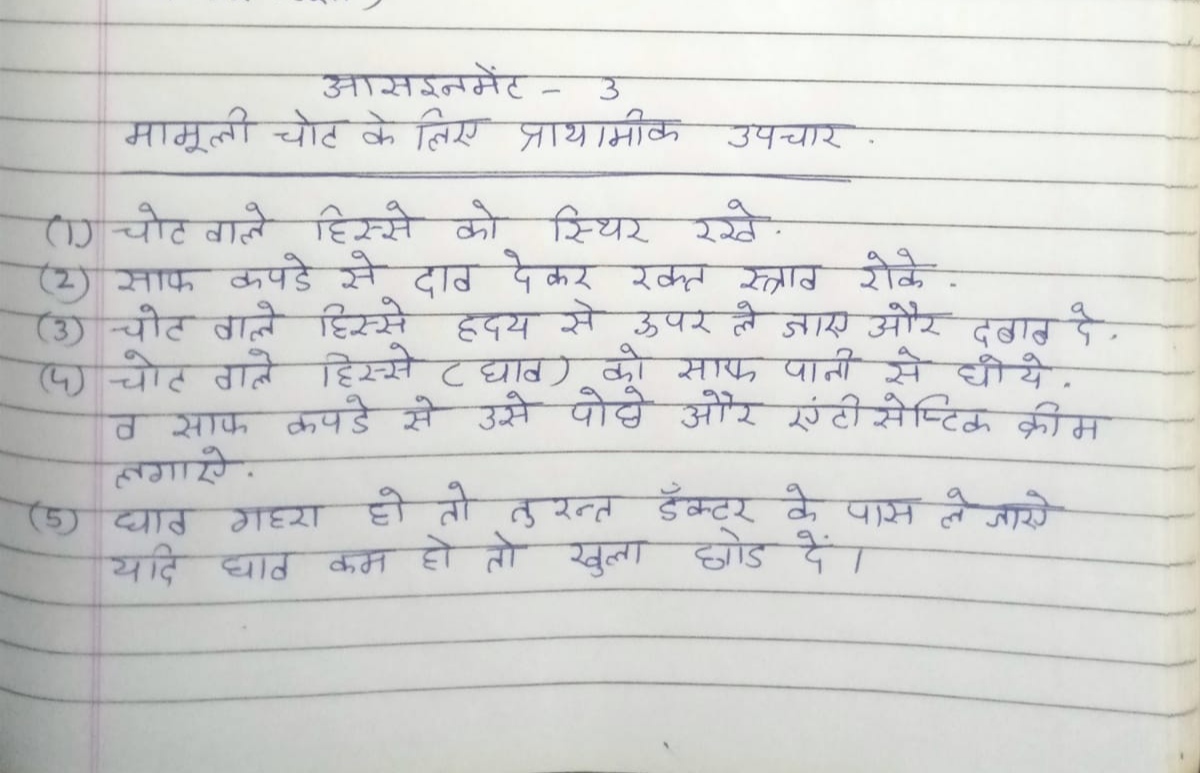 आसइनमेंट - 3
मामूली चोट के लिए प्राथामीक उपचार .
(1) चोट वाले हिस्से को स्थिर रखे.
(2) साफ कपडे से दाब देकर रक्त स्त्राव रोके .
(3) चोट वाले हिस्से ह्दय से ऊपर ले जाए और दबाब दे .
(4) चोट वाले हिस्से (घाव) को साफ पानी से धोये .
व साफ कपडे से उसे पोछे और एंटीसेप्टिक क्रीम
लगाऐ .
(5) घाव गहरा हो तो तुरन्त डॅाक्टर के पास ले जाऐ
यदि घाव कम हो तो खुला छोड दें ।